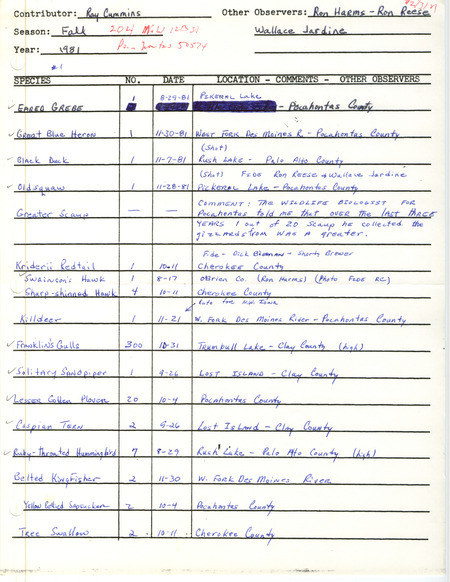 Contributor: Ray Cummins Other Observers: Ron Harms - Ron Reese
Season: Fall 204 NW 12th St Wallace Jardine
Year: 1981 Pocahontas 50574
#1
SPECIES NO. DATE LOCATION - COMMENTS - OTHER OBSERVERS
Eared Grebe 1 8-29-81 Pickerel Lake - Pocahontas County
Great Blue Heron 1 11-30-81 West Fork Des Moines R. - Pocahontas County
(Shot)
Black Duck 1 11-7-81 Rush Lake - Palo Alto County
(Shot) Fide Ron Reese & Wallace Jardine
Oldsquaw 1 11-28-81 Pickerel Lake - Pocahontas County
Greater Scaup — — Comment: The wildlife biologist for
Pocahontas told me that over the last three
years 1 out of 20 scaup he collected the
gizzards from was a greater.
Fide - Dick Bierman - Shorty Brower
Kriderii Redtail 1 10-11 Cherokee County
Swainson's Hawk 1 8-17 O'Brien Co. (Ron Harms) (Photo Fide RC)
Sharp-shinned Hawk 4 10-11 Cherokee County
late for N.W. Iowa
Killdeer 1 11-21 W. Fork Des Moines River - Pocahontas County
Franklin's Gulls 300 10-31 Trumbull Lake - Clay County (high)
Solitary Sandpiper 1 9-26 Lost Island - Clay County
Lesser Golden Plover 20 10-4 Pocahontas County
Caspian Tern 2 9-26 Lost Island - Clay County
Ruby-throated Hummingbird 7 8-29 Rush Lake - Palo Alto County (high)
Belted Kingfisher 2 11-30 W. Fork Des Moines River
Yellow Bellied Sapsucker 2 10-4 Pocahontas County
Tree Swallow 2 10-11 Cherokee County